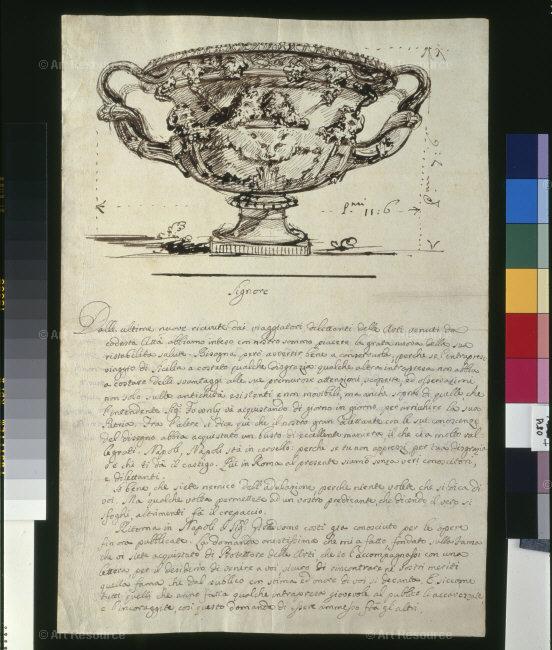 p.mi 7:6
p.mi 11:6
Signore
Dalle ultime nuove ricevute dai viaggiatori dilettanti delle Arti venuti da
codesta Città abbiamo inteso con nostro sommo piacere la grata nuova della sua
ristabilita salute. Bisogna però avvertir bene a conservarla, perche se l'intrapresi
viaggio di Sicilia a costato qualche disgrazia qualche altra intrapresa non abbia
a costare delli svantaggi alle sue premurose attenzioni, scoperte, ed osservazioni
non solo sulle antichità esistenti e non mobili, ma anche sopra di quelle che
l'intendente Sig. Townly va acquistando di giorno in giorno, per arrichire la sua
Patria. Fra l'altre si dice più che il nostro gran dilettante con le sue conoscenze
del disegno abbia acquistato un busto di eccellente maniera, il che sta molto sul
le grati. Napoli, Napoli stà in cervello, perche se tu non apprezzi, per tua disgrazia
Dio che ti dà il castigo. Più in Roma al presente siamo senza veri conoscitori,
e dilettanti.
Sò bene che siete nemico dell'adulazione, perche niente volete che si dica di
voi. Ma qualche volta permettete ad un vostro predicante che dicendo il vero si
sfoghi, altrimenti fà il crepaccio.
Ritorna in Napoli il Sig. costì già conosciuto per le opere
fin ora publicate. La domanda onestissima che mi a fatto fondato sulla fama
che vi siete acquistato di Protettore delle Arti che io l'accompagnassi con una
lettera per il desiderio di venire a voi sicuro di rincontrare ne Vostri meriti
quella fama che dal publico con stima ed onore di voi si decanta. E siccome
tutti quelli che anno fatta qualche intrapresa giovevole al publico li accarezzate
e l'incoraggite così questo domanda di essere ammesso frà gli altri.
© Art Resource
© Art Resource
© Art Resource
© Art Resource